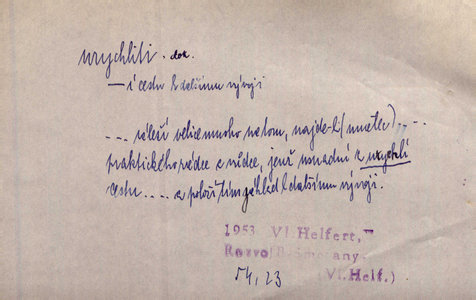 urychliti. dok.
— i cestu k dalšímu vývoji
... záleží velice mnoho na tom, najde-li (umělec) „
praktického rádce a vůdce, jenž usnadní a urychlí
cestu .... a položí tím základ k dalšímu vývoji.
1953 Vl. Helfert,
54, 23 (Vl. Helf.)